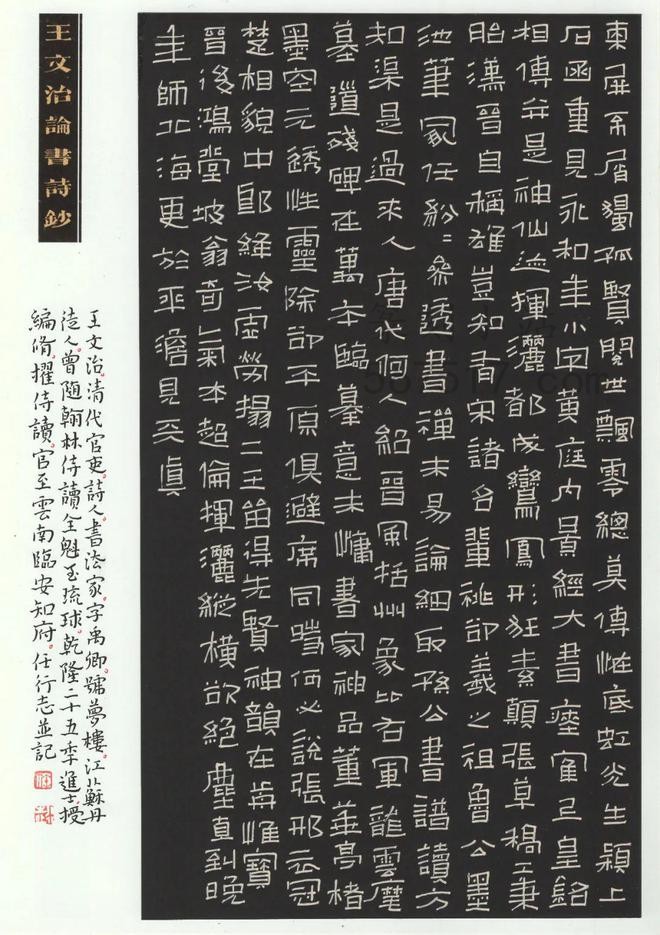 東屏系屑獨孤賢閱世飄零總莫傳惟底虹光生潁上
石函重見永和年小字黃庭內景經大書瘞隺丘皇銘
相傳并是神仙迹揮灑都成鸞鳳形狂素顛張草稿工秉
貽漢晉自稱雄豈知有宋諸名輩祧卻羲之祖魯公墨
池筆冢任紛〻參透書禪未易論細取孫公書譜讀方
知渠是過來人唐代何人紹晉風括州象比右軍龍雲麾
墓道殘碑在萬本臨摹意未慵書家神品董華亭楮
墨空元透性靈除卻平原俱避席同時何必說張邢云冠
楚相貌中郎絳汝虛勞搨二王留得先賢神韻在苒惟寶
晉後鴻堂坡翁奇氣本超倫揮灑縱橫欲絕塵直到晚
年師北海更於平澹見天真
王文治論書詩鈔
王文治清代官吏詩人書法家字禹卿號夢樓江蘇丹
徒人曾隨翰林侍讀全魁至琉球乾隆二十五季進士授
編脩擢侍讀官至雲南臨安知府任行志並記